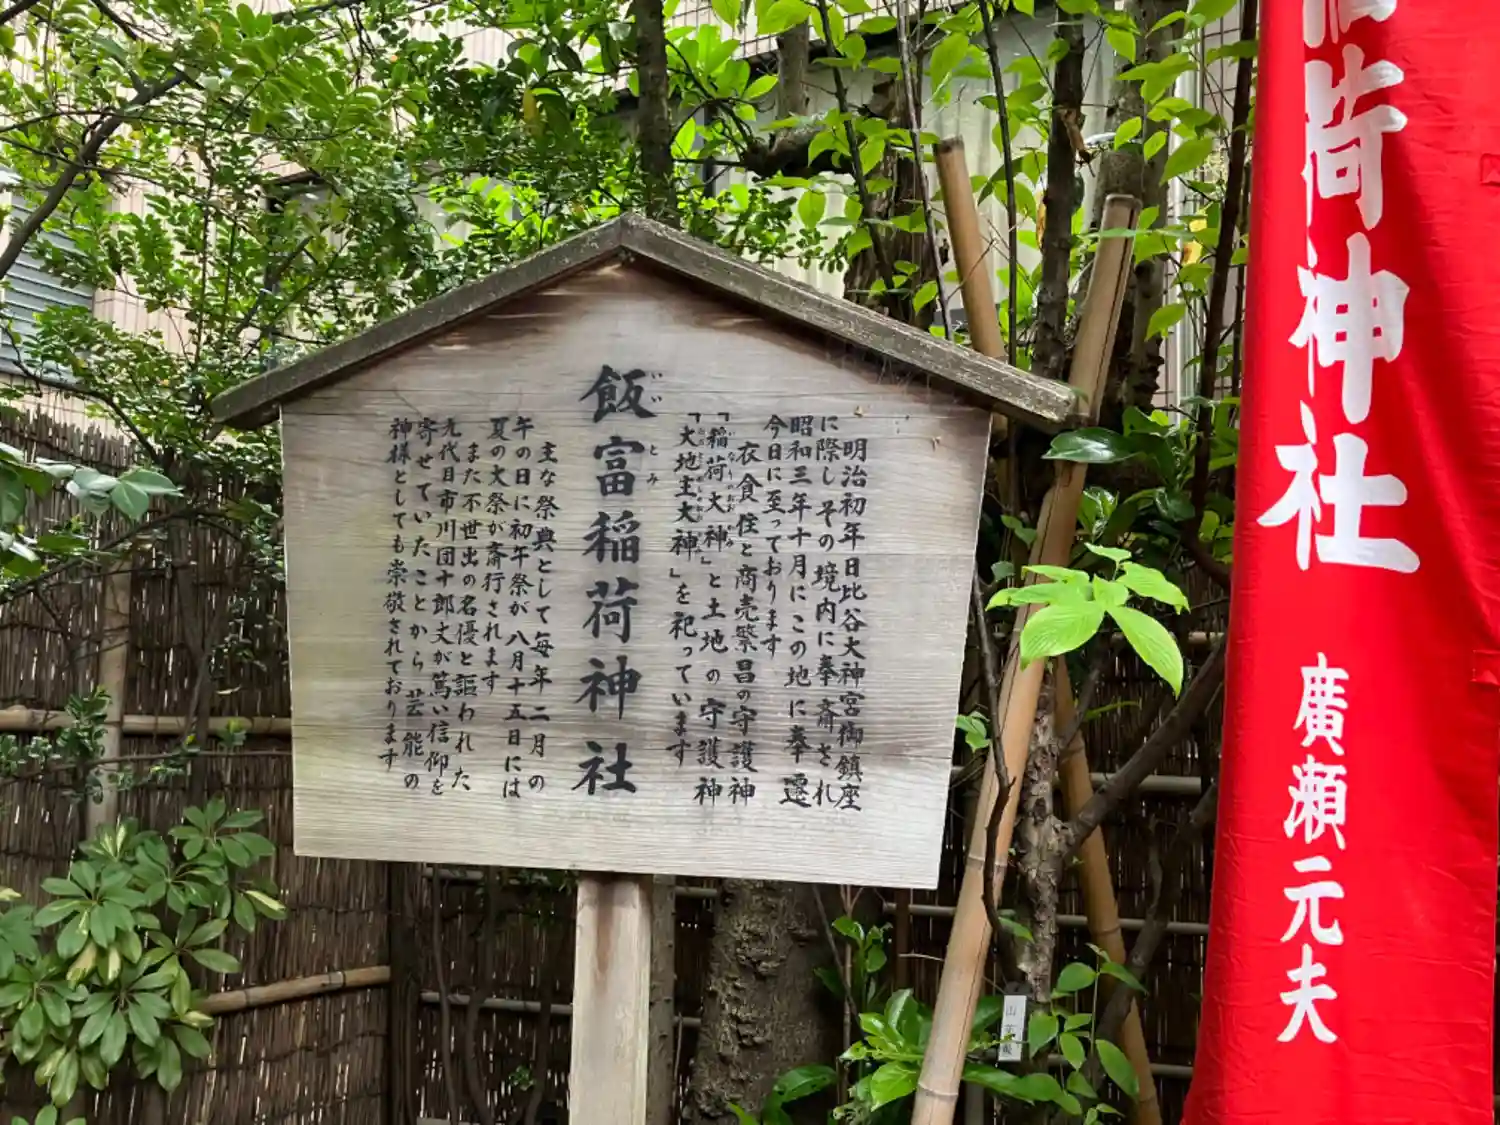 明治初年日比谷大神宮御鎮座
に際しその境内に奉斎され
昭和三年十月にこの地に奉遷
今日に至っております
衣食住と商売繁昌の守護神
「稲荷大神」と土地の守護神
「大地主大神」を祀っています
飯富稲荷神社
いいとみ
主な祭典として毎年二月の
午の日に初午祭が八月十五日には
夏の大祭が斎行されます
また不世出の名優と謳われた
九代目市川団十郎丈が篤い信仰を
寄せていたことから芸能の
神様としても崇敬されております
荷神社
廣瀬元夫